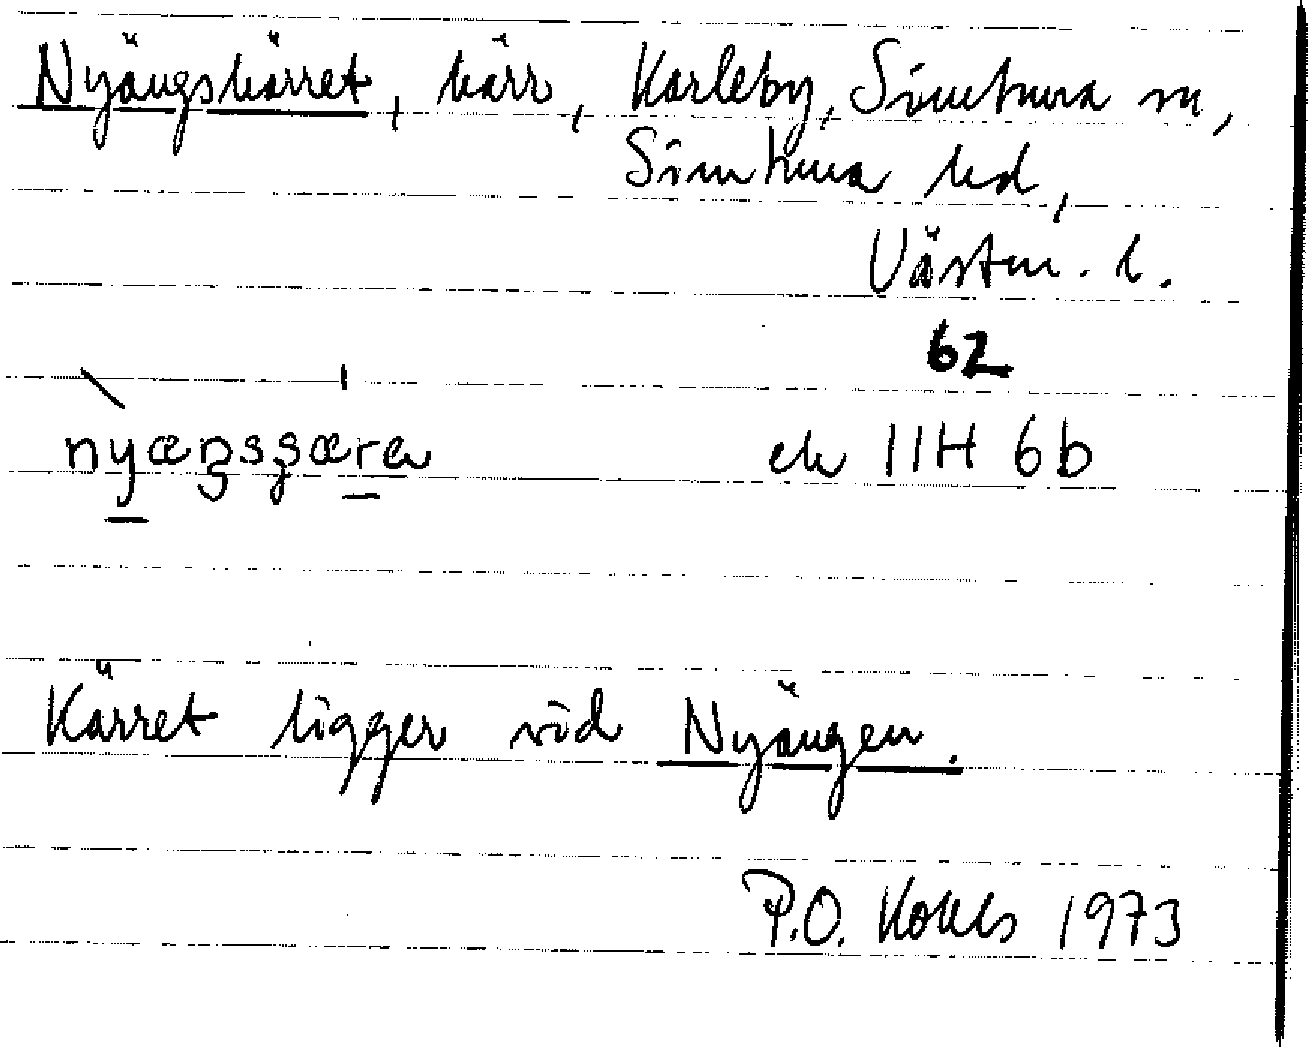 Nyängskärret, kärr, Karleby, Simtuna sn,
Simtuna hd,
Västm. l.
62
ek 11H 6b
Kärret ligger vid Nyängen.
P.O. 1973